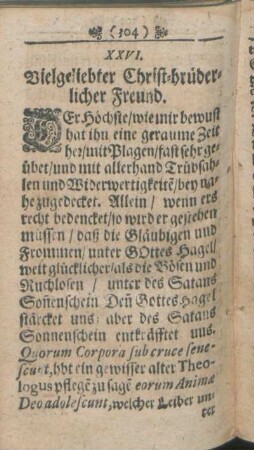 (304)
XXVI.
Vielgeliebter Christ-brüder-
licher Freund.
DEr Höchste/wie mir bewust
hat ihn eine geraume Zeit
her/mit Plagen/fast sehr ge-
übet/und mit allerhand Trübsah-
len und Widerwertigkeitẽ/bey na-
he zugedecket. Allein/ wenn ers
recht bedencket/so wird er gestehen
müssen/ daß die Gläubigen und
Frommen/ unter GOttes Hagel/
weit glücklicher/als die Bösen und
Ruchlosen/ unter des Satans
Soñenschein Deñ Gottes Hagel
stärcket uns/ aber des Satans
Sonnenschein entkräfftet uns.
Quorum Corpora sub cruce sene-
scunt, hbt ein gewisser alter Theo-
logus pflegẽ zu sagẽ eorum Animæ
Deo adolescunt, welcher Leiber un-
ter